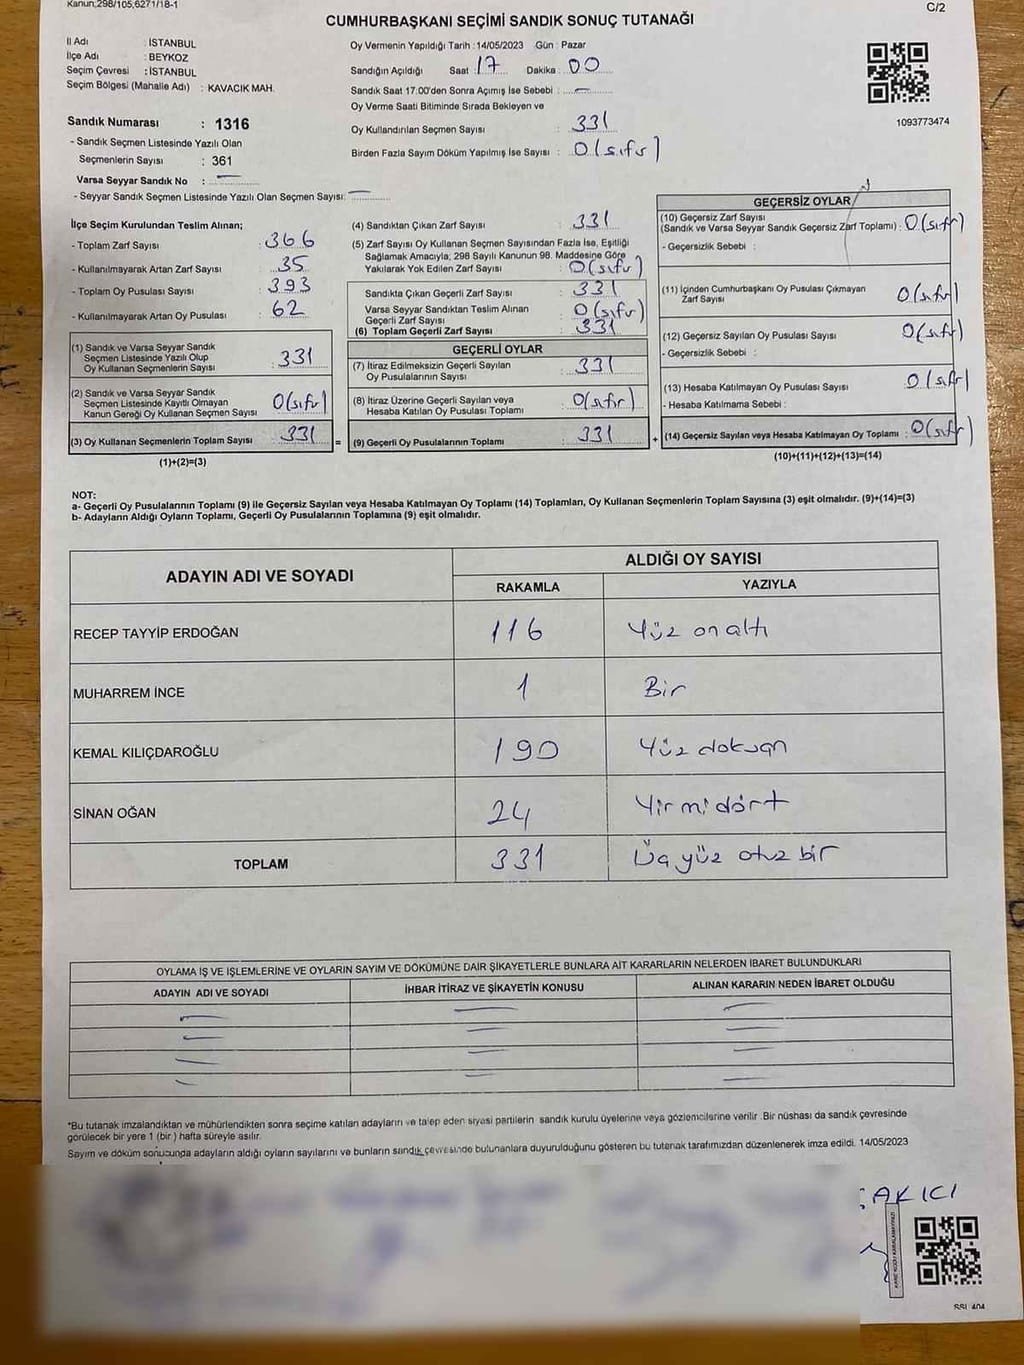 Kanun;298/105,6271/18-1
C/2
CUMHURBAŞKANI SEÇİMİ SANDIK SONUÇ TUTANAĞI
İl Adı : İSTANBUL
İlçe Adı : BEYKOZ
Seçim Çevresi : İSTANBUL
Seçim Bölgesi (Mahalle Adı) : KAVACIK MAH.
Oy Vermenin Yapıldığı Tarih : 14/05/2023 Gün : Pazar
Sandığın Açıldığı Saat : 17 Dakika : 00
Sandık Saat 17:00'den Sonra Açımış İse Sebebi : —
Oy Verme Saati Bitiminde Sırada Bekleyen ve
Oy Kullandırılan Seçmen Sayısı : 331
Birden Fazla Sayım Döküm Yapılmış İse Sayısı : 0(sıfır)
1093773474
Sandık Numarası : 1316
- Sandık Seçmen Listesinde Yazılı Olan
Seçmenlerin Sayısı : 361
Varsa Seyyar Sandık No : —
- Seyyar Sandık Seçmen Listesinde Yazılı Olan Seçmen Sayısı: —
İlçe Seçim Kurulundan Teslim Alınan;
- Toplam Zarf Sayısı : 366
- Kullanılmayarak Artan Zarf Sayısı : 35
- Toplam Oy Pusulası Sayısı : 393
- Kullanılmayarak Artan Oy Pusulası : 62
(1) Sandık ve Varsa Seyyar Sandık
Seçmen Listesinde Yazılı Olup
Oy Kullanan Seçmenlerin Sayısı : 331
(2) Sandık ve Varsa Seyyar Sandık
Seçmen Listesinde Kayıtlı Olmayan
Kanun Gereği Oy Kullanan Seçmen Sayısı : 0(sıfır)
(3) Oy Kullanan Seçmenlerin Toplam Sayısı : 331
(1)+(2)=(3)
(4) Sandıktan Çıkan Zarf Sayısı : 331
(5) Zarf Sayısı Oy Kullanan Seçmen Sayısından Fazla İse, Eşitliği
Sağlamak Amacıyla; 298 Sayılı Kanunun 98. Maddesine Göre
Yakılarak Yok Edilen Zarf Sayısı : 0(sıfır)
Sandıkta Çıkan Geçerli Zarf Sayısı : 331
Varsa Seyyar Sandıktan Teslim Alınan
Geçerli Zarf Sayısı : 0(sıfır)
(6) Toplam Geçerli Zarf Sayısı : 331
GEÇERLİ OYLAR
(7) İtiraz Edilmeksizin Geçerli Sayılan
Oy Pusulalarının Sayısı : 331
(8) İtiraz Üzerine Geçerli Sayılan veya
Hesaba Katılan Oy Pusulası Toplamı : 0(sıfır)
= (9) Geçerli Oy Pusulalarının Toplamı : 331 +
GEÇERSİZ OYLAR
(10) Geçersiz Zarf Sayısı
(Sandık ve Varsa Seyyar Sandık Geçersiz Zarf Toplamı) : 0(sıfır)
- Geçersizlik Sebebi :
(11) İçinden Cumhurbaşkanı Oy Pusulası Çıkmayan
Zarf Sayısı : 0(sıfır)
(12) Geçersiz Sayılan Oy Pusulası Sayısı : 0(sıfır)
- Geçersizlik Sebebi :
(13) Hesaba Katılmayan Oy Pusulası Sayısı : 0(sıfır)
- Hesaba Katılmama Sebebi :
(14) Geçersiz Sayılan veya Hesaba Katılmayan Oy Toplamı : 0(sıfır)
(10)+(11)+(12)+(13)=(14)
NOT:
a- Geçerli Oy Pusulalarının Toplamı (9) ile Geçersiz Sayılan veya Hesaba Katılmayan Oy Toplamı (14) Toplamları, Oy Kullanan Seçmenlerin Toplam Sayısına (3) eşit olmalıdır. (9)+(14)=(3)
b- Adayların Aldığı Oyların Toplamı, Geçerli Oy Pusulalarının Toplamına (9) eşit olmalıdır.
ADAYIN ADI VE SOYADI ALDIĞI OY SAYISI
RAKAMLA YAZIYLA
RECEP TAYYİP ERDOĞAN 116 Yüz onaltı
MUHARREM İNCE 1 Bir
KEMAL KILIÇDAROĞLU 190 Yüz doksan
SİNAN OĞAN 24 Yirmi dört
TOPLAM 331 Üç yüz otuz bir
OYLAMA İŞ VE İŞLEMLERİNE VE OYLARIN SAYIM VE DÖKÜMÜNE DAİR ŞİKAYETLERLE BUNLARA AİT KARARLARIN NELERDEN İBARET BULUNDUKLARI
ADAYIN ADI VE SOYADI İHBAR İTİRAZ VE ŞİKAYETİN KONUSU ALINAN KARARIN NEDEN İBARET OLDUĞU
— — —
— — —
— — —
— — —
*Bu tutanak imzalandıktan ve mühürlendikten sonra seçime katılan adayların ve talep eden siyasi partilerin sandık kurulu üyelerine veya gözlemcilerine verilir .Bir nüshası da sandık çevresinde
görülecek bir yere 1 (bir ) hafta süreyle asılır.
Sayım ve döküm sonucunda adayların aldığı oyların sayılarını ve bunların sandık çevresinde bulunanlara duyurulduğunu gösteren bu tutanak tarafımızdan düzenlenerek imza edildi. 14/05/2023
AKICI
SSI 404